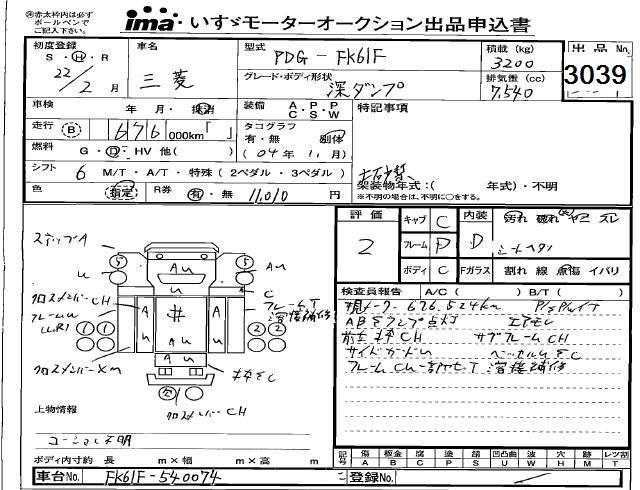 ㊟赤太枠内は必ず
ボールペンで
ご記入下さい。
ima いすゞモーターオークション出品申込書
初度登録 S・H・R 22/2月
車名 三菱
型式 PDG-FK61F
グレード・ボディ形状 深ダンプ
積載 (kg) 3200
排気量 (cc) 7,540
出品No. 3039
車検 年 月・抹消
装備 A・P・P C S W
特記事項
走行 B 676 000km「 」
タコグラフ 有・無 (04年11月)
燃料 G・D・HV 他( )
シフト 6 M/T・A/T・特殊(2ペダル・3ペダル)
架装物年式:( 年式)・不明
※不明の場合は、不明に○をする。
色 指定 R券 有・無 11,010 円
評価 2
キャブ C
フレーム P
ボディ C
内装 D
汚れ 破れ ヤニ スレ
Fガラス 割れ 線 点傷 イバリ
ステップA
クロスメンバーCH
フレームT
溶接補修
クロスメンバーXM
クロスメンバーCH
検査員報告 A/C( ) B/T( )
現メーター 676,524km
ABSランプ点灯 エアモレ
サブフレームCH
サイドガードU
溶接補修
上物情報
コーションレ不明
ボディ内寸約 長 m×幅 m×高 m
記号 傷A 板金B 腐C 塗P 錆S 凹凸曲U 波W 穴H 跡M レツ割T
車台No. FK61F-540074
登録No.